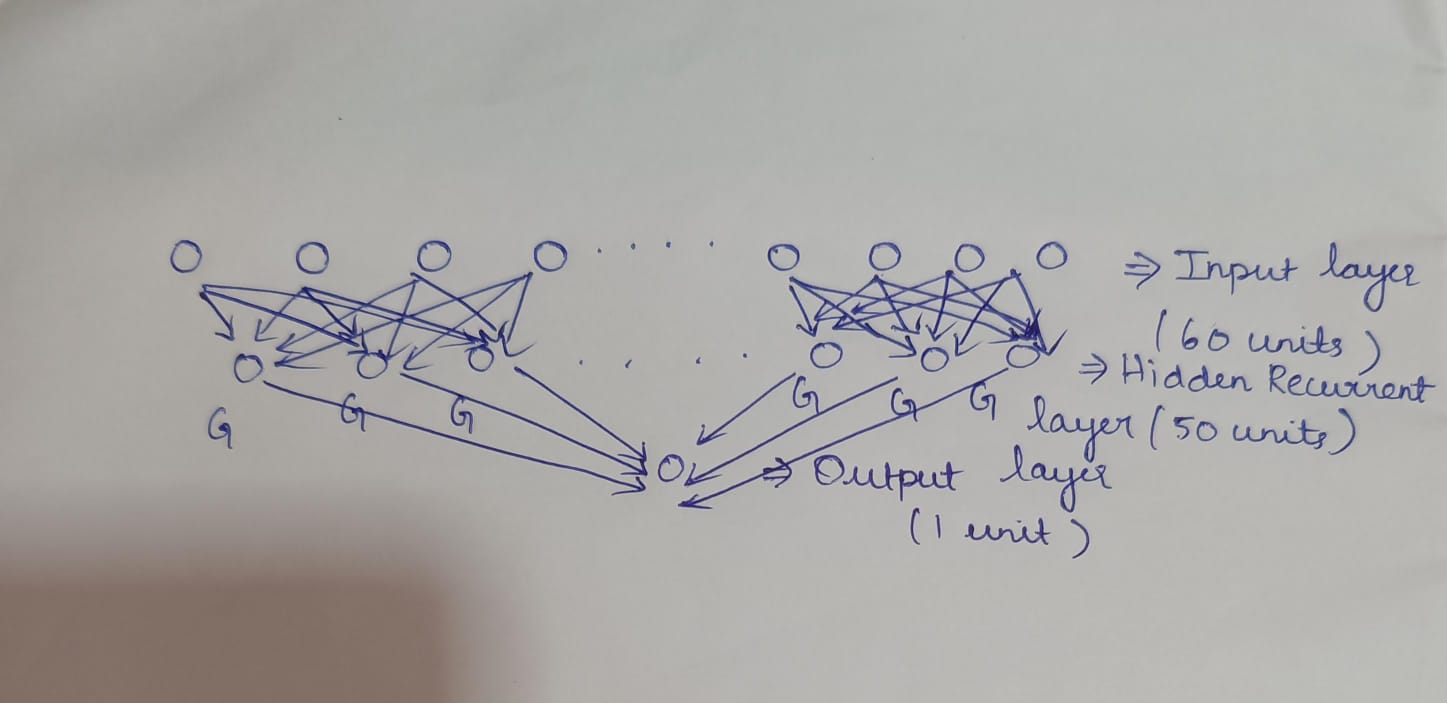 ⇒ Input layer
(60 units)
⇒ Hidden Recurrent
layer (50 units)
G G G G G G
⇒ Output layer
(1 unit)